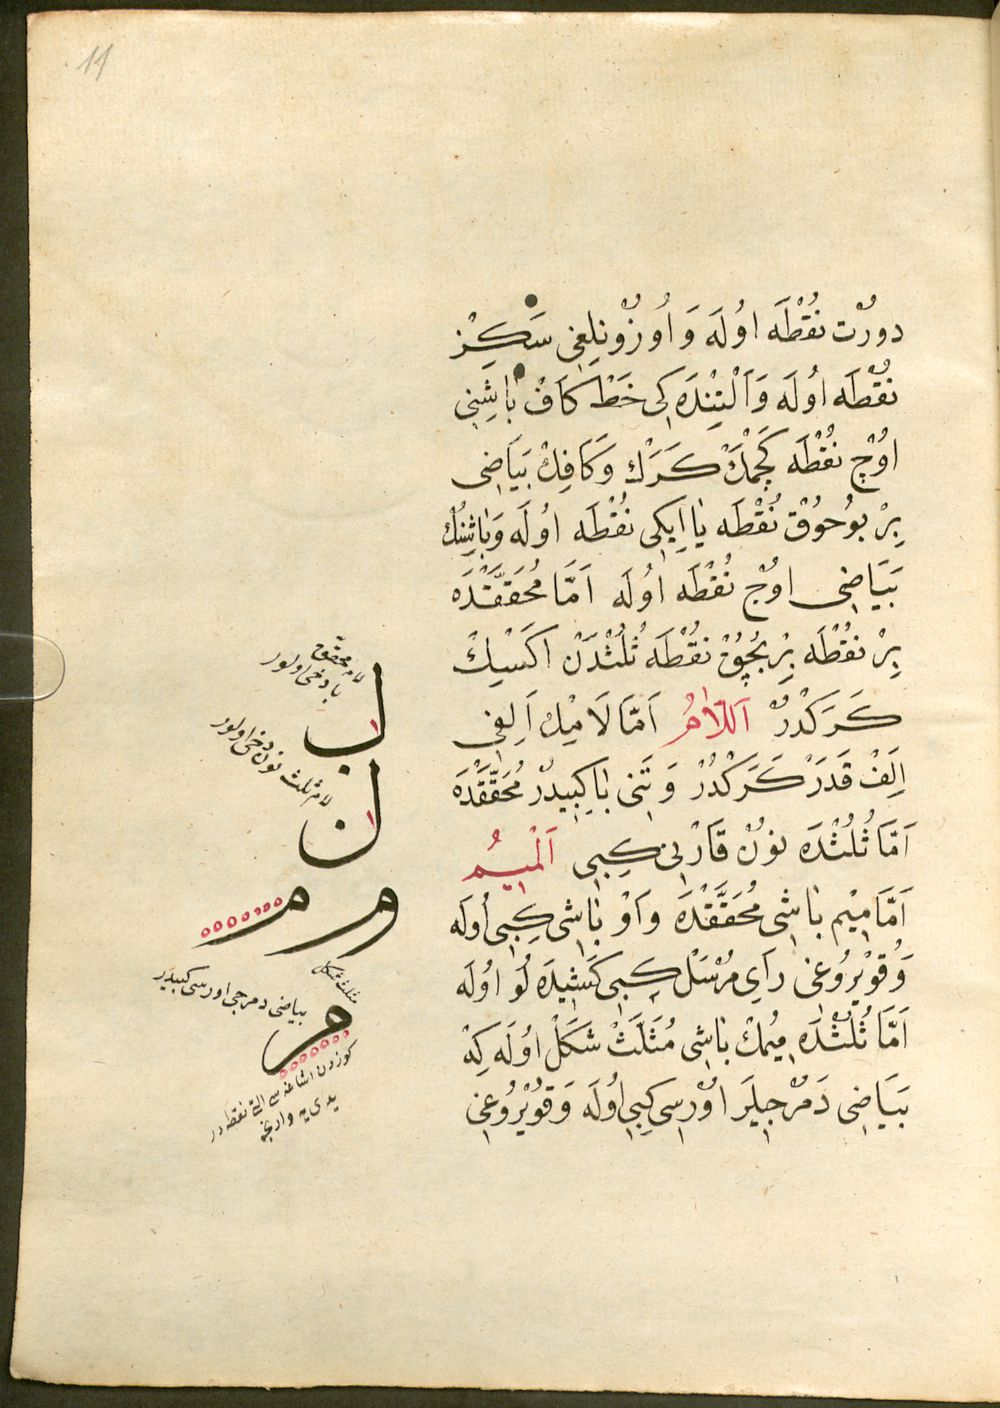 11
دورْت نُقْطَه اوُلَه وَ اُوزُونلِغِى سَكِزْ
نُقْطَه اوُلَه وَاَلْتِنْدَه كِى خَطْ كَافْ بَاشِنِى
اوُچْ نُقْطَه كَچْمَكْ كَرَكْ وَكَافِكْ بَيَاضِى
بِرْ بوُچوُقْ نُقْطَه يَا اِيكِى نُقْطَه اوُلَه وَبَاشِنُكْ
بَيَاضِى اوُچْ نُقْطَه اوُلَه اَمَّا مُحَقَّقْدَه
بِرْ نُقْطَه بِرْ بُچُقْ نُقْطَه ثُلُثْدَنْ اَكْسِكْ
كَرَكْدُرْ اَللَّامُ اَمَّا لَامِكْ اَلِفِى
اَلِفْ قَدَرْ كَرَكْدُرْ وَتَنِى بَا كِبِيدُرْ مُحَقَّقْدَه
اَمَّا ثُلُثْدَه نوُنْ قَارْنِى كِبِى اَلْمِيمُ
اَمَّا مِيْم بَاشِى مُحَقَّقْدَه وَاوْ بَاشِى كِبِى اُولَه
وَقوُيْرُوغِى رَاىِ مُرْسَلْ كِبِى كَشِيدَه لُو اوُلَه
اَمَّا ثُلُثْدَه مِيْمِكْ بَاشِى مُثَلَّثْ شَكَلْ اوُلَه كِهْ
بَيَاضِى دَمُرْجِيلَر اوُرْسِى كِبِى اُولَه وَقوُيْرُوغِى
لام محقق
با دخى اولور
ل
لام ثلث نون دخى اولور
ل
م م
مثلث شكل
بياضى دمرجى اورسى كبيدر
م
كوزدن اشاغه سى التى نقطه در
يدى يه وارنجه